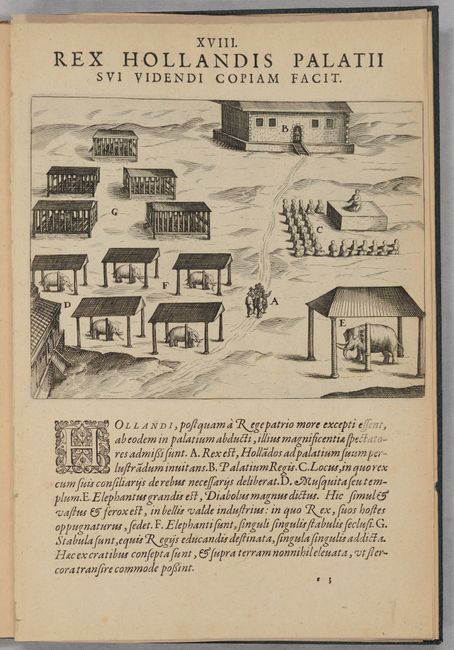 XVIII.
REX HOLLANDIS PALATII
SVI VIDENDI COPIAM FACIT.
B
G
C
F
D
A
E
HOLLANDI, postquam à Rege patrio more excepti essent,
ab eodem in palatium abducti, illius magnificentiæ spectato-
res admissi sunt. A. Rex est, Hollādos ad palatium suum per-
lustrādum inuitans. B. Palatium Regis. C. Locus, in quo rex
cum suis consiliarijs de rebus necessarijs deliberat. D. Musquita seu tem-
plum. E. Elephantus grandis est, Diabolus magnus dictus. Hic simul &
vastus & ferox est, in bellis valde industrius: in quo Rex, suos hostes
oppugnaturus, sedet. F. Elephanti sunt, singuli singulis stabulis seclusi. G.
Stabula sunt, equis Regijs educandis destinata, singula singulis addicta.
Hæc ex cratibus consepta sunt, & supra terram nonnihil eleuata, vt ster-
cora transire commode possint.
e 3